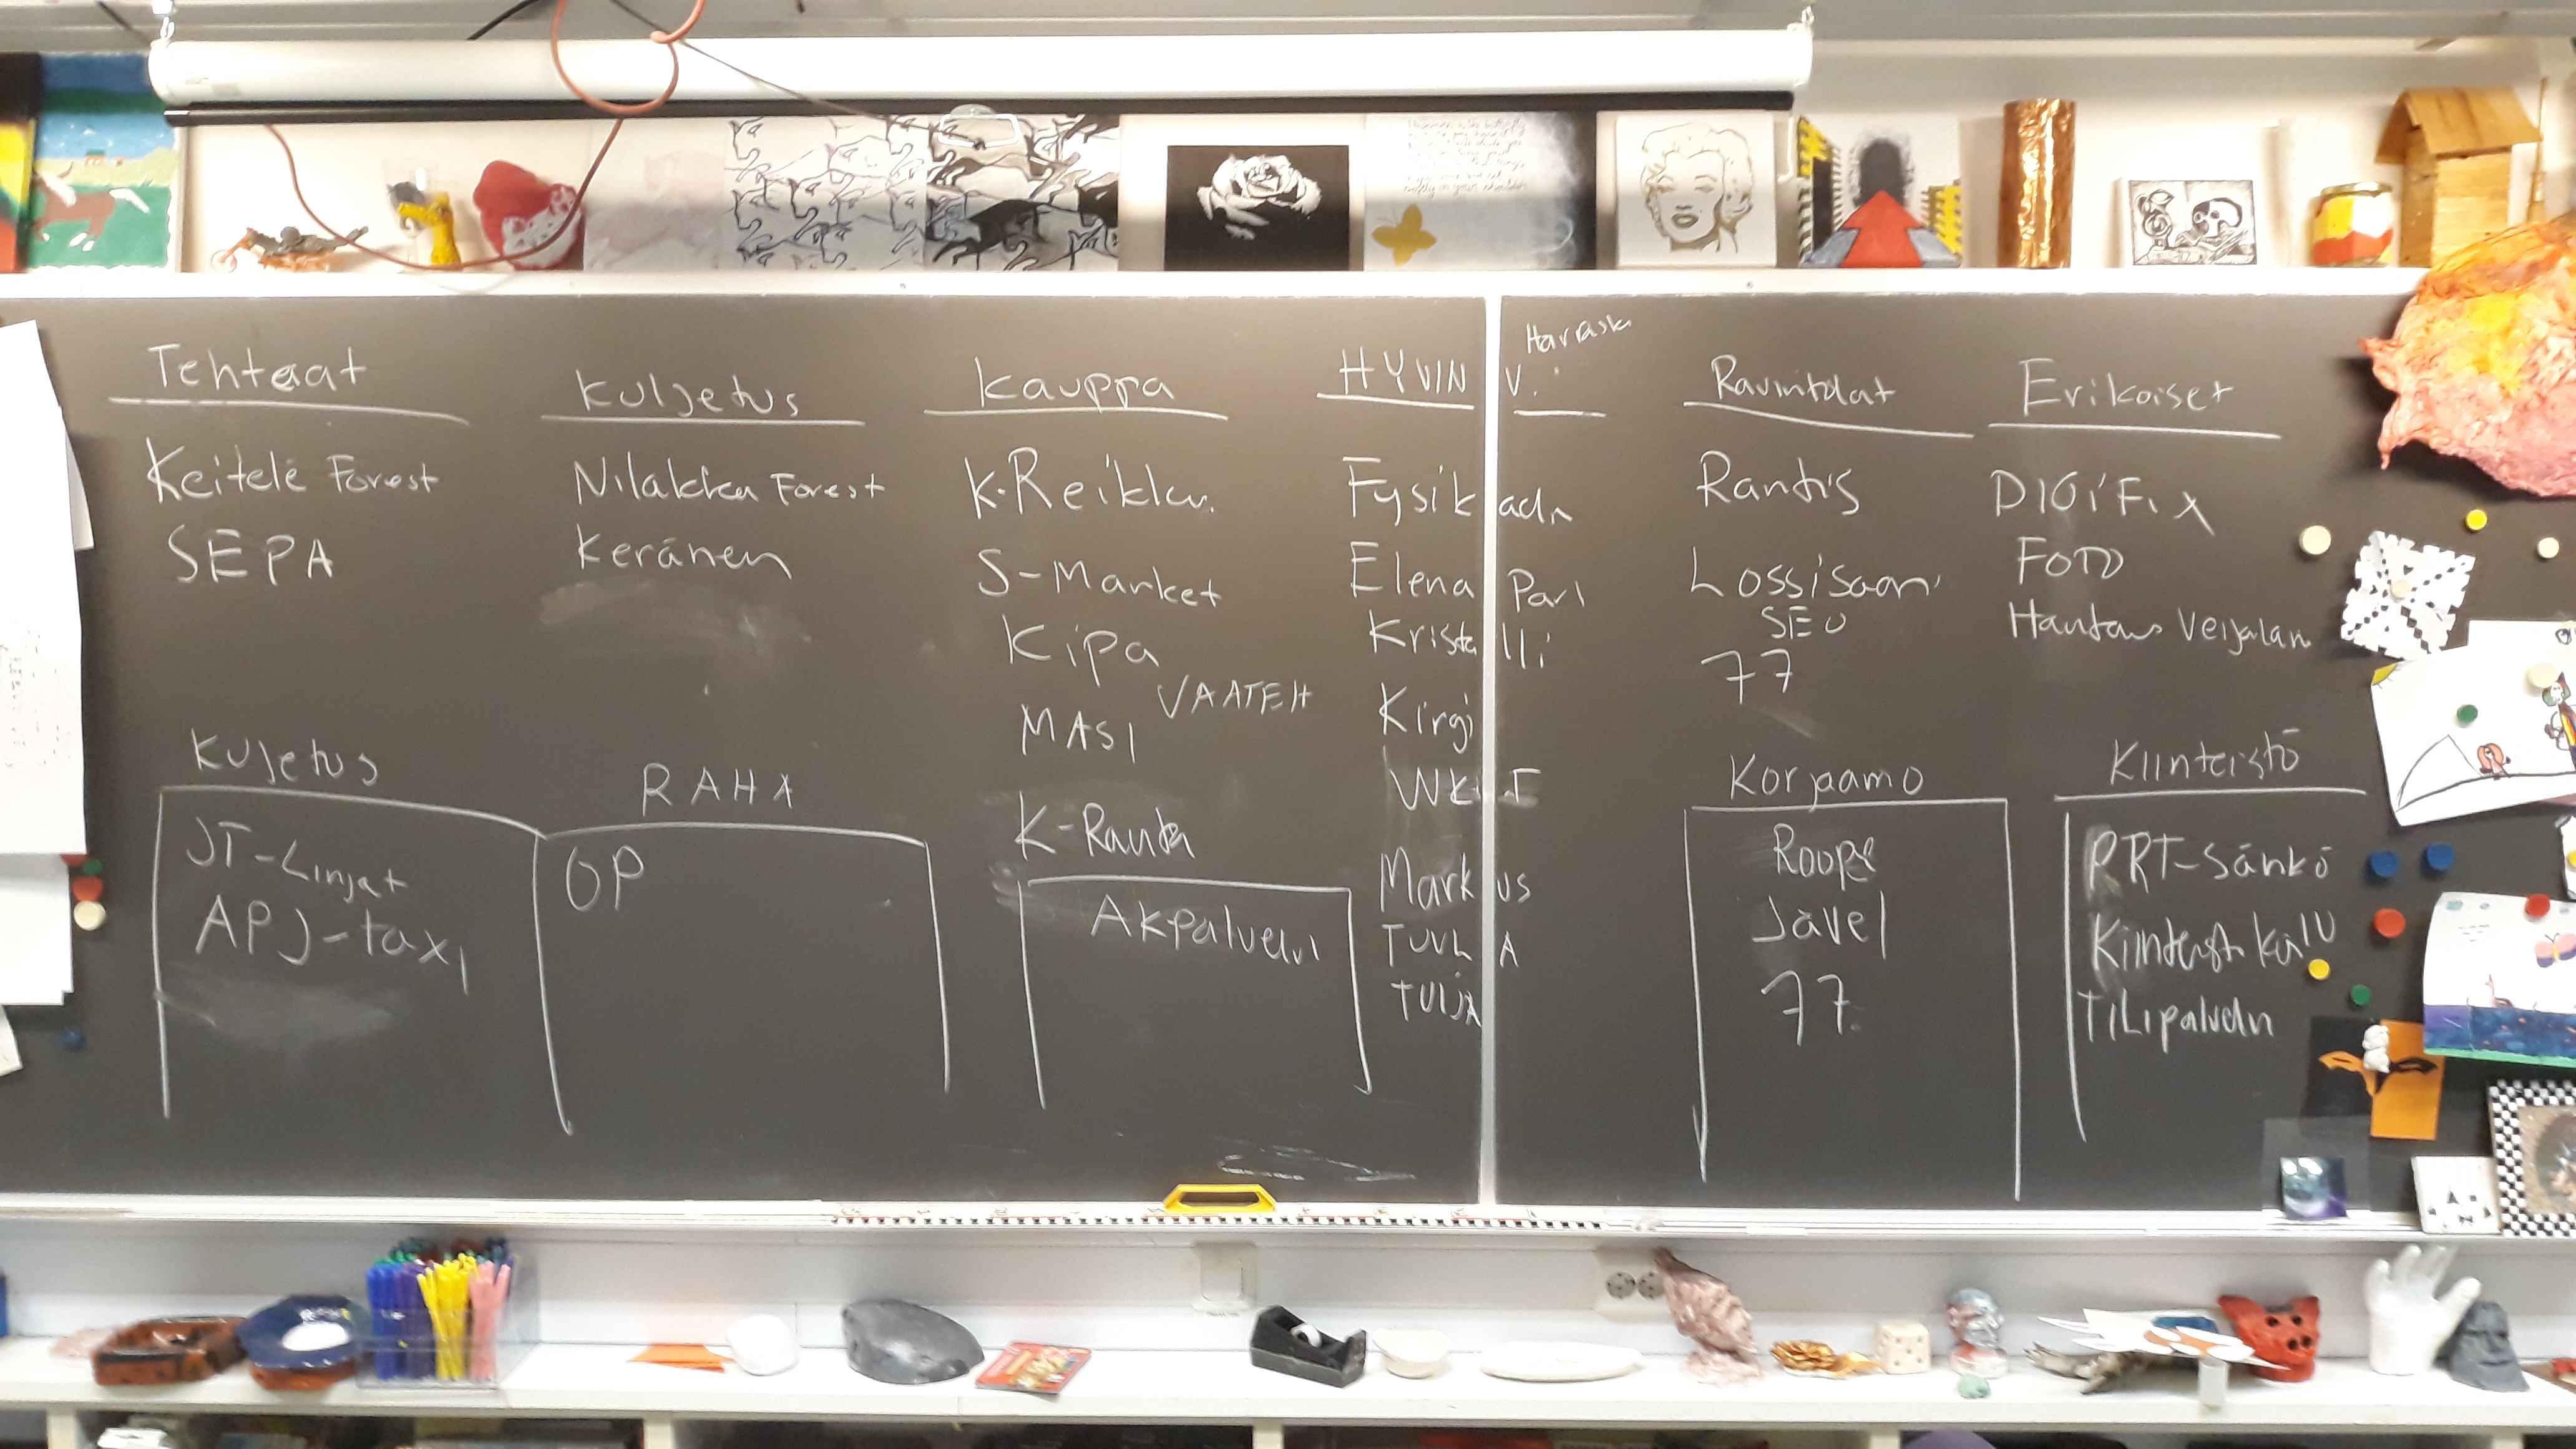 Tehtaat
Keitele Forest
SEPA
Kuljetus
Nilakka Forest
Keränen
Kauppa
K-Reiklu.
S-Market
Kipa
VAATEH
MASI
K-Rauta
Akpalvelu
Harrask
HYVIN V.
Fysik
Elena Pari
Kristalli
Kirgi
Markus
TUULA
TUIJA
Ravintolat
Rantis
Lossisaari
SEO
77
Erikoiset
DIGIFIX
FOTO
Hautaus Veijalan
Kuljetus
JT-Linjat
APJ-taxi
RAHA
OP
Korjaamo
Roope
Javel
77
Kiinteistö
PRT-Sänkö
TiLipalvelu